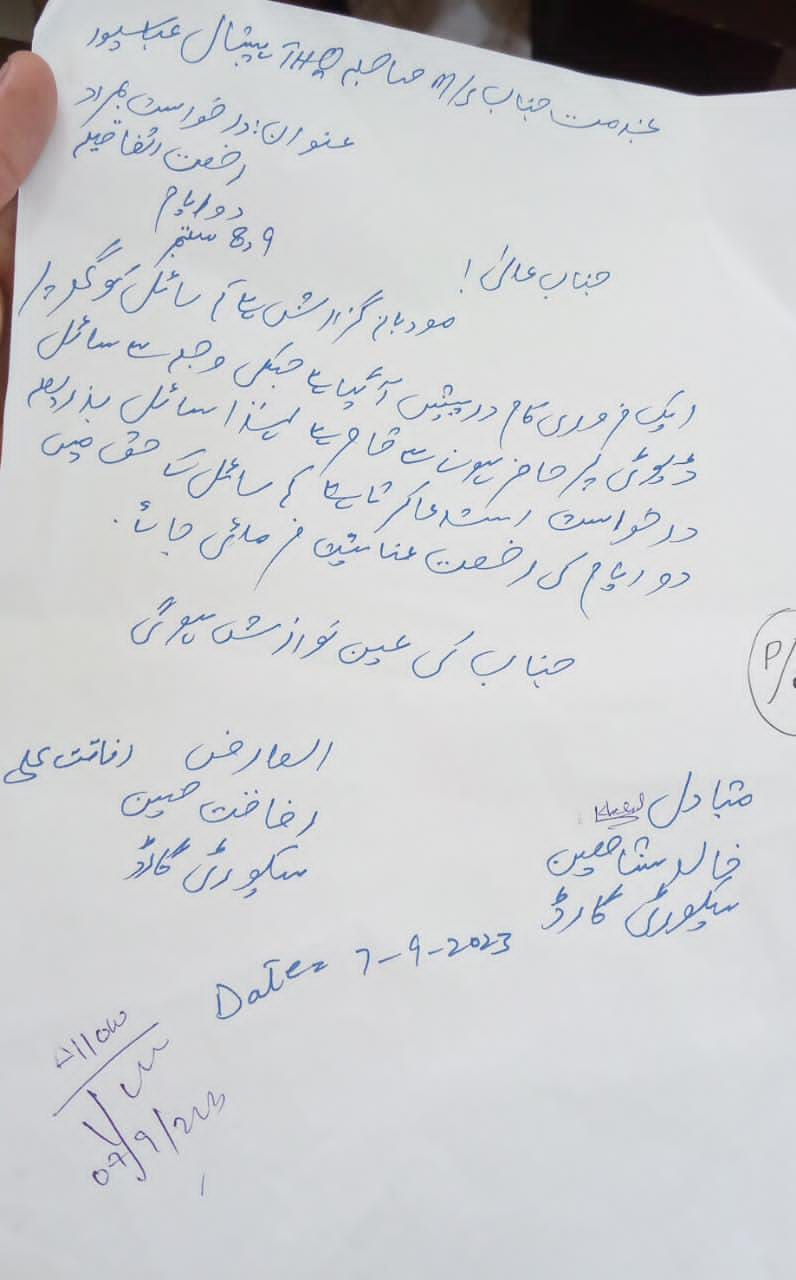 بخدمت جناب M/S صاحبہ THQ ہسپتال عباسپور
عنوان: درخواست بمراد
رخصت اتفاقیہ
دو ایام
8,9 ستمبر
جناب عالی!
مودبانہ گزارش ہے کہ سائل کو گھر پر
ایک ضروری کام درپیش آ گیا ہے جسکی وجہ سے سائل
ڈیوٹی پر حاضر ہونے سے قاصر ہے لہذا سائل بذریعہ
درخواست استدعا کرتا ہے کہ سائل کے حق میں
دو ایام کی رخصت عنایت فرمائی جائے.
جناب کی عین نوازش ہو گی
العارض
رفاقت حسین
سکیورٹی گارڈ
متبادل
خالد شاہین
سکیورٹی گارڈ
Date= 7-9-2023
Allow
07/9/2023
P/